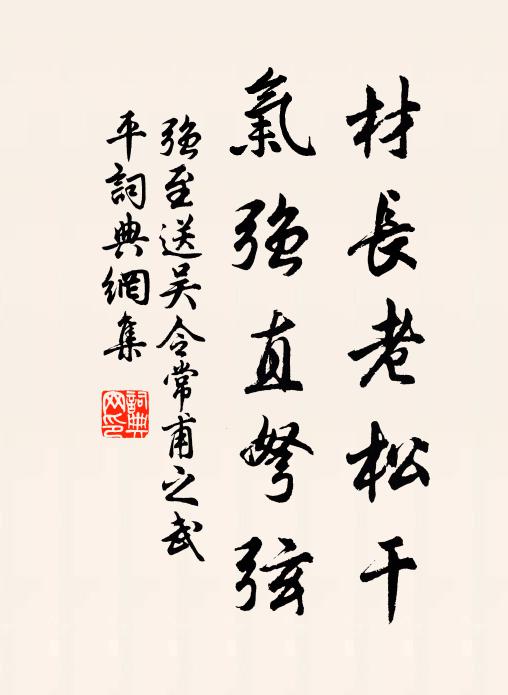 材長老松干
氣強直弩弦
強至送吳令常甫之武
平詞典網集
詞典
网印